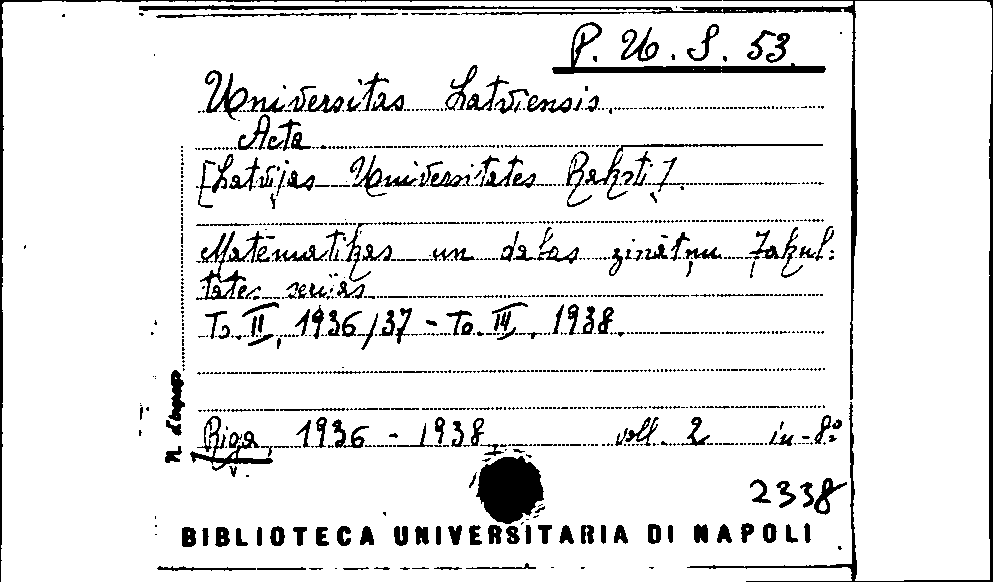 P. U. S. 53.
Universitas Latviensis.
Acta.
[Latvijas Universitates Raksti].
Matēmatikas un dabas zinātņu fakul:
tates serijas
To. II, 1936/37 - To. III, 1938.
N. d'ingresso
Riga, 1936 - 1938. voll. 2 in-8º
2338
BIBLIOTECA UNIVERSITARIA DI NAPOLI